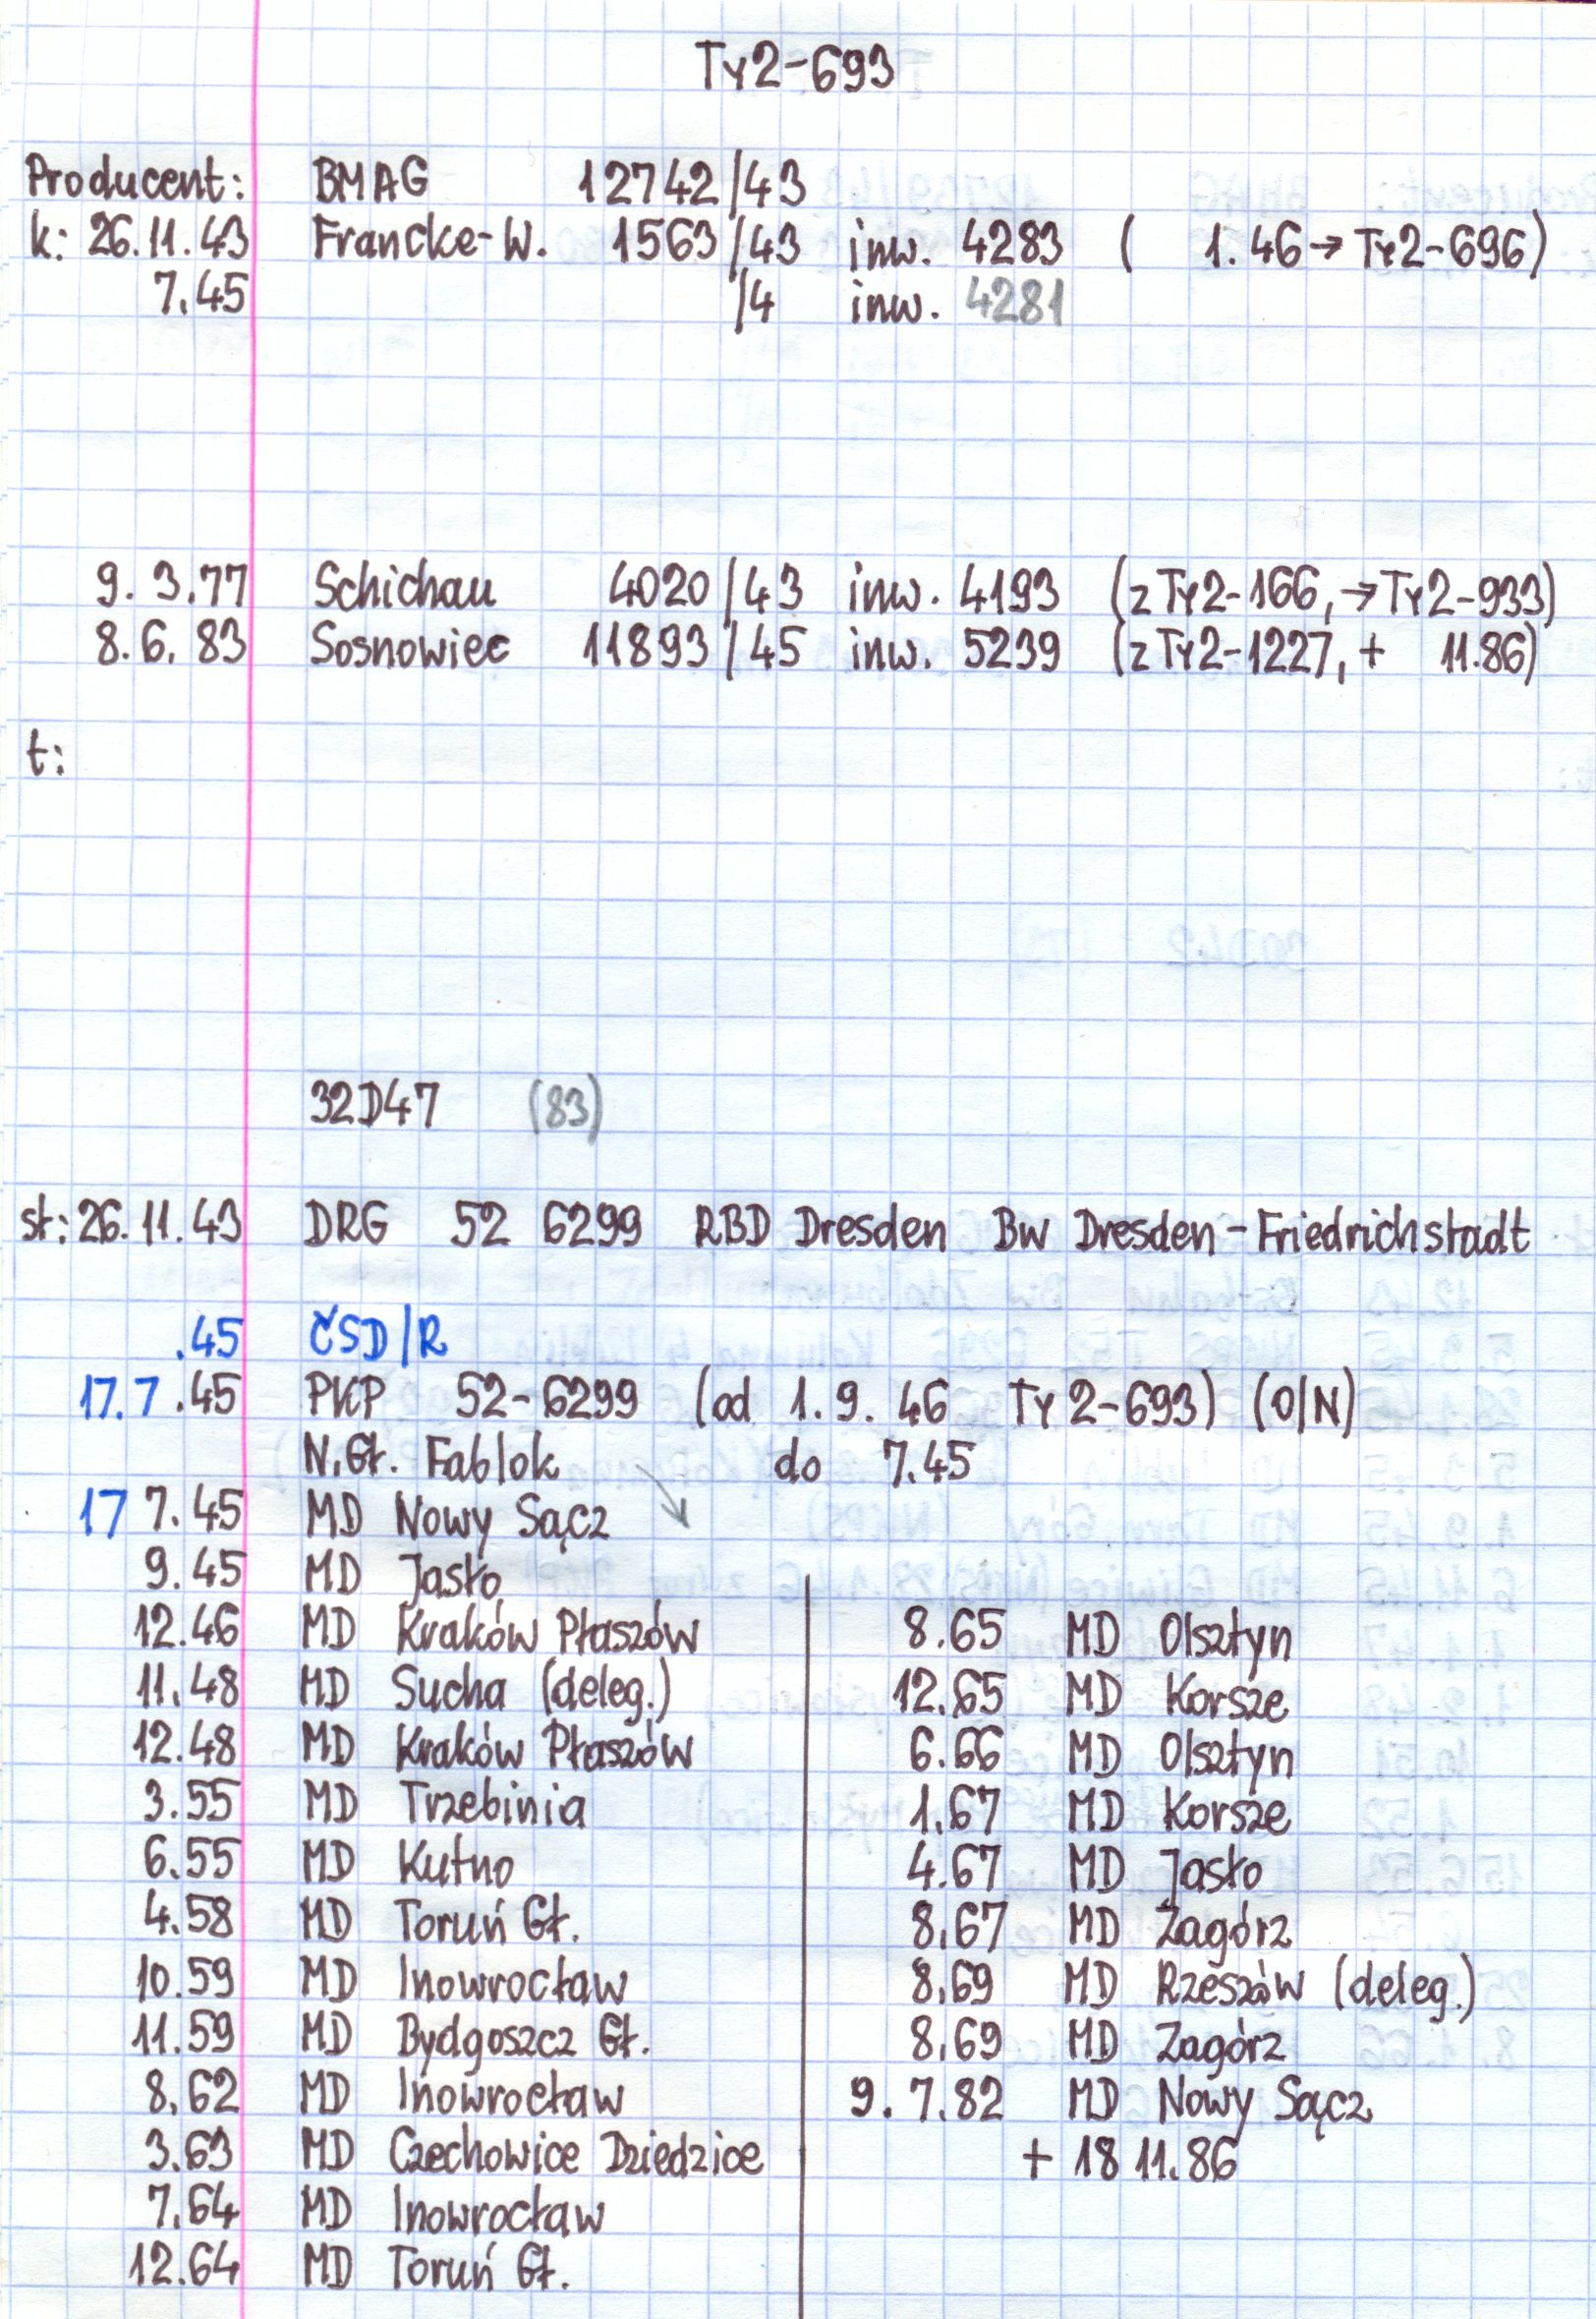 Ty2-693
Producent: BMAG 12742/43
k: 26.11.43 Francke-W. 1563/43 inw. 4283 ( 1.46 → Ty2-696)
7.45 /4 inw. 4281
9. 3.77 Schichau 4020/43 inw. 4193 (z Ty2-166, → Ty2-933)
8.6. 83 Sosnowiec 11893/45 inw. 5239 (z Ty2-1227, + 11.86)
t:
32D47 (83)
st: 26.11.43 DRG 52 6299 RBD Dresden Bw Dresden-Friedrichstadt
.45 ČSD/R
17.7.45 PKP 52-6299 (od 1.9.46 Ty2-693) (O/N)
N.Gł. Fablok do 7.45
17 7.45 MD Nowy Sącz
9.45 MD Jasło
12.46 MD Kraków Płaszów
11.48 MD Sucha (deleg.)
12.48 MD Kraków Płaszów
3.55 MD Trzebinia
6.55 MD Kutno
4.58 MD Toruń Gł.
10.59 MD Inowrocław
11.59 MD Bydgoszcz Gł.
8.62 MD Inowrocław
3.63 MD Czechowice Dziedzice
7.64 MD Inowrocław
12.64 MD Toruń Gł.
8.65 MD Olsztyn
12.65 MD Korsze
6.66 MD Olsztyn
1.67 MD Korsze
4.67 MD Jasło
8.67 MD Zagórz
8.69 MD Rzeszów (deleg.)
8.69 MD Zagórz
9. 7.82 MD Nowy Sącz
+ 18 11.86